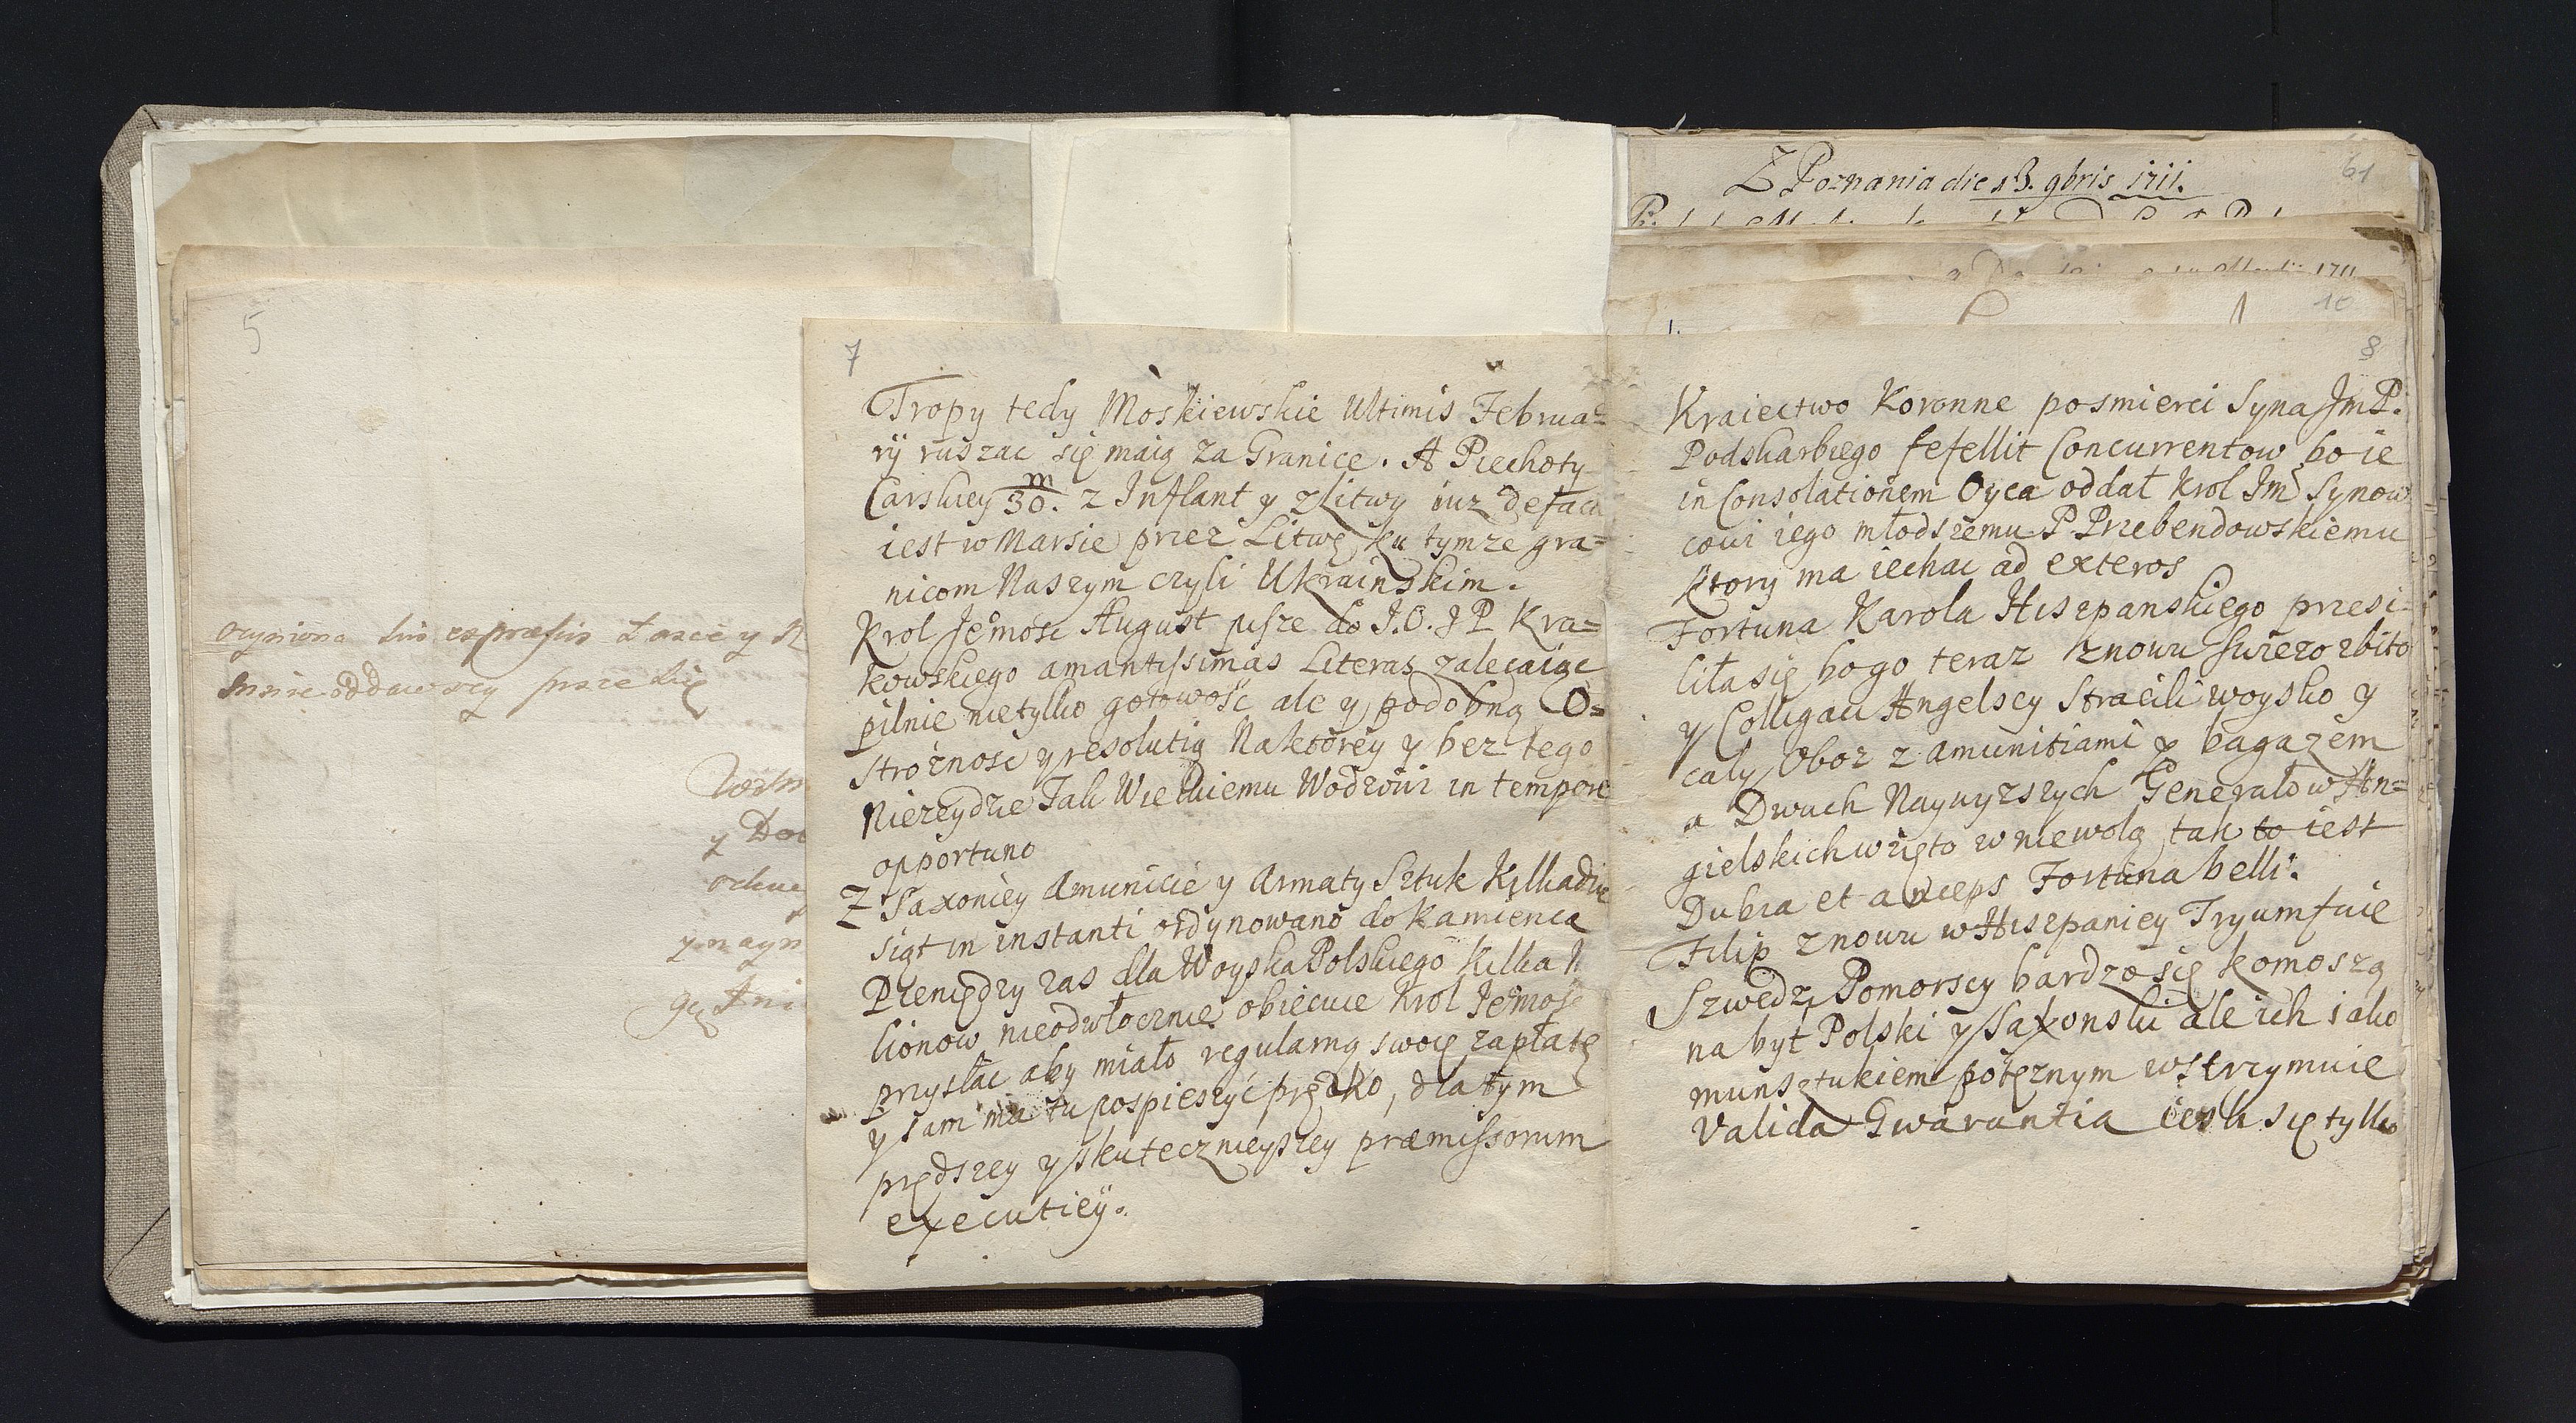 5
oczywiona
mnie oddawszy
y Do
7
Tropy tedy Moskiewskie Ultimis Februa=
rÿ ruszac się maią za Granice. A Piechoty
Carskiey 30. m z Inflant y z Litwy iuz de facto
iest w Marsie przez Litwę ku tymze gra=
nicom Naszym czyli Ukrainskim.
Krol Jemosc August pisze do J.O.J P Kra=
kowskiego amantissimas Literas zalecaiąc
pilnie nietylko gotowosc ale y podobną O=
stroznosc y resolutią Naktorey y bez tego
Niezeydzie Jak Wielkiemu Wodzowi in tempore
opportuno
Z Saxoniey Amunicie y Armaty Sztuk Kilkadzie
siąt in instanti ordynowano do Kamienca
Pieniędzy zas dla Woyska Polskiego Kilka
lionow nieodwłocznie obiecuie Krol Jemosc
przysłac aby miało regularną swoię zapłatę
y sam ma tu pospieszyć prędko, dla tym
prędszey y skutecznieyszey præmissorum
executiey.
61
Z Poznania die 13. 9bris 1711.
1711
10
1.
8
Kraiectwo Koronne posmierci Syna JmP.
Podskarbiego fefellit Concurrentow bo ie
in Consolationem Oyca oddał Krol Jm Synow
cowi iego młodszemu P. Przebendowskiemu
ktory ma iechac ad exteros
Fortuna Karola Hiszpanskiego przesi=
liła się bo go teraz znowu swiezo zbito
y Colligaci Angelscy Stracili woysko y
caly Oboz z amunitiami y bagazem
a Dwuch Naywyzszych Generałow An=
gielskich wzięto w niewolą tak to iest
Dubia et anceps Fortuna belli.
Filip znowu w Hiszpaniey Tryumfuie
Szwedzi Pomorscy bardzo się komoszą
na byt Polski y Saxonski ale ich iako
munsztukiem potęznym wstrzymuie
Valida Gwarantia iesli się tylko